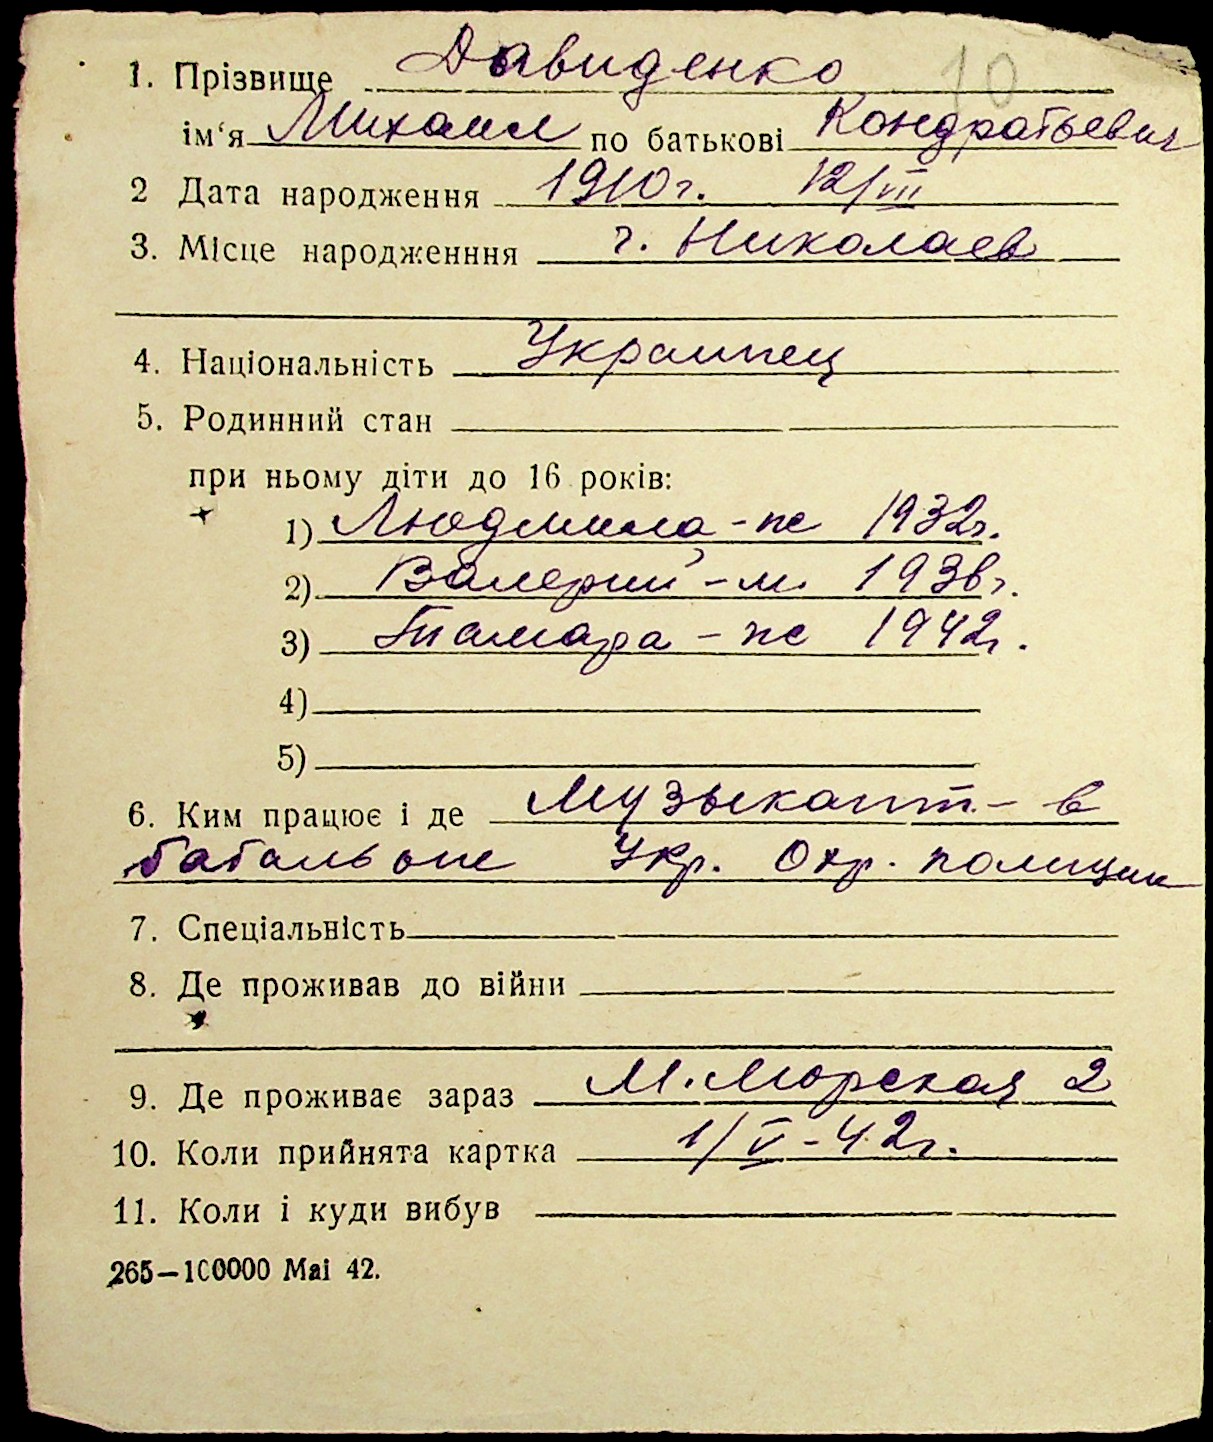 10
1. Прізвище Давиденко
ім‘я Михаил по батькові Кондратьевич
2 Дата народження 1910г. 12/III
3. Місце народженння г. Николаев
4. Національність Украинец
5. Родинний стан
при ньому діти до 16 років:
1) Людмила - же 1932г.
2) Валерий - м. 1936г.
3) Тамара - же 1942г.
4)
5)
6. Ким працює і де Музыкант - в
батальоне Укр. Охр. полиции
7. Спеціальність
8. Де проживав до війни
9. Де проживає зараз М. Морская 2
10. Коли прийнята картка 1/V - 42г.
11. Коли і куди вибув
265—100000 Mai 42.